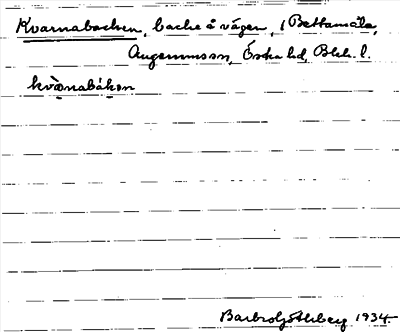 Kvarnabacken, backe å vägen, i Bettamåla,
Augerums sn, Östra hd, Blek. l.
kvàrnabákən
Barbro Göthberg 1934.